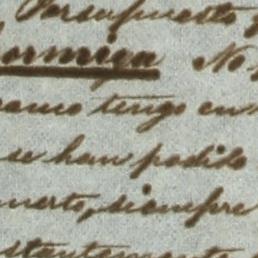 Porsupuesto
No
como tengo en
se han podido
muerto, siempre
stantemente